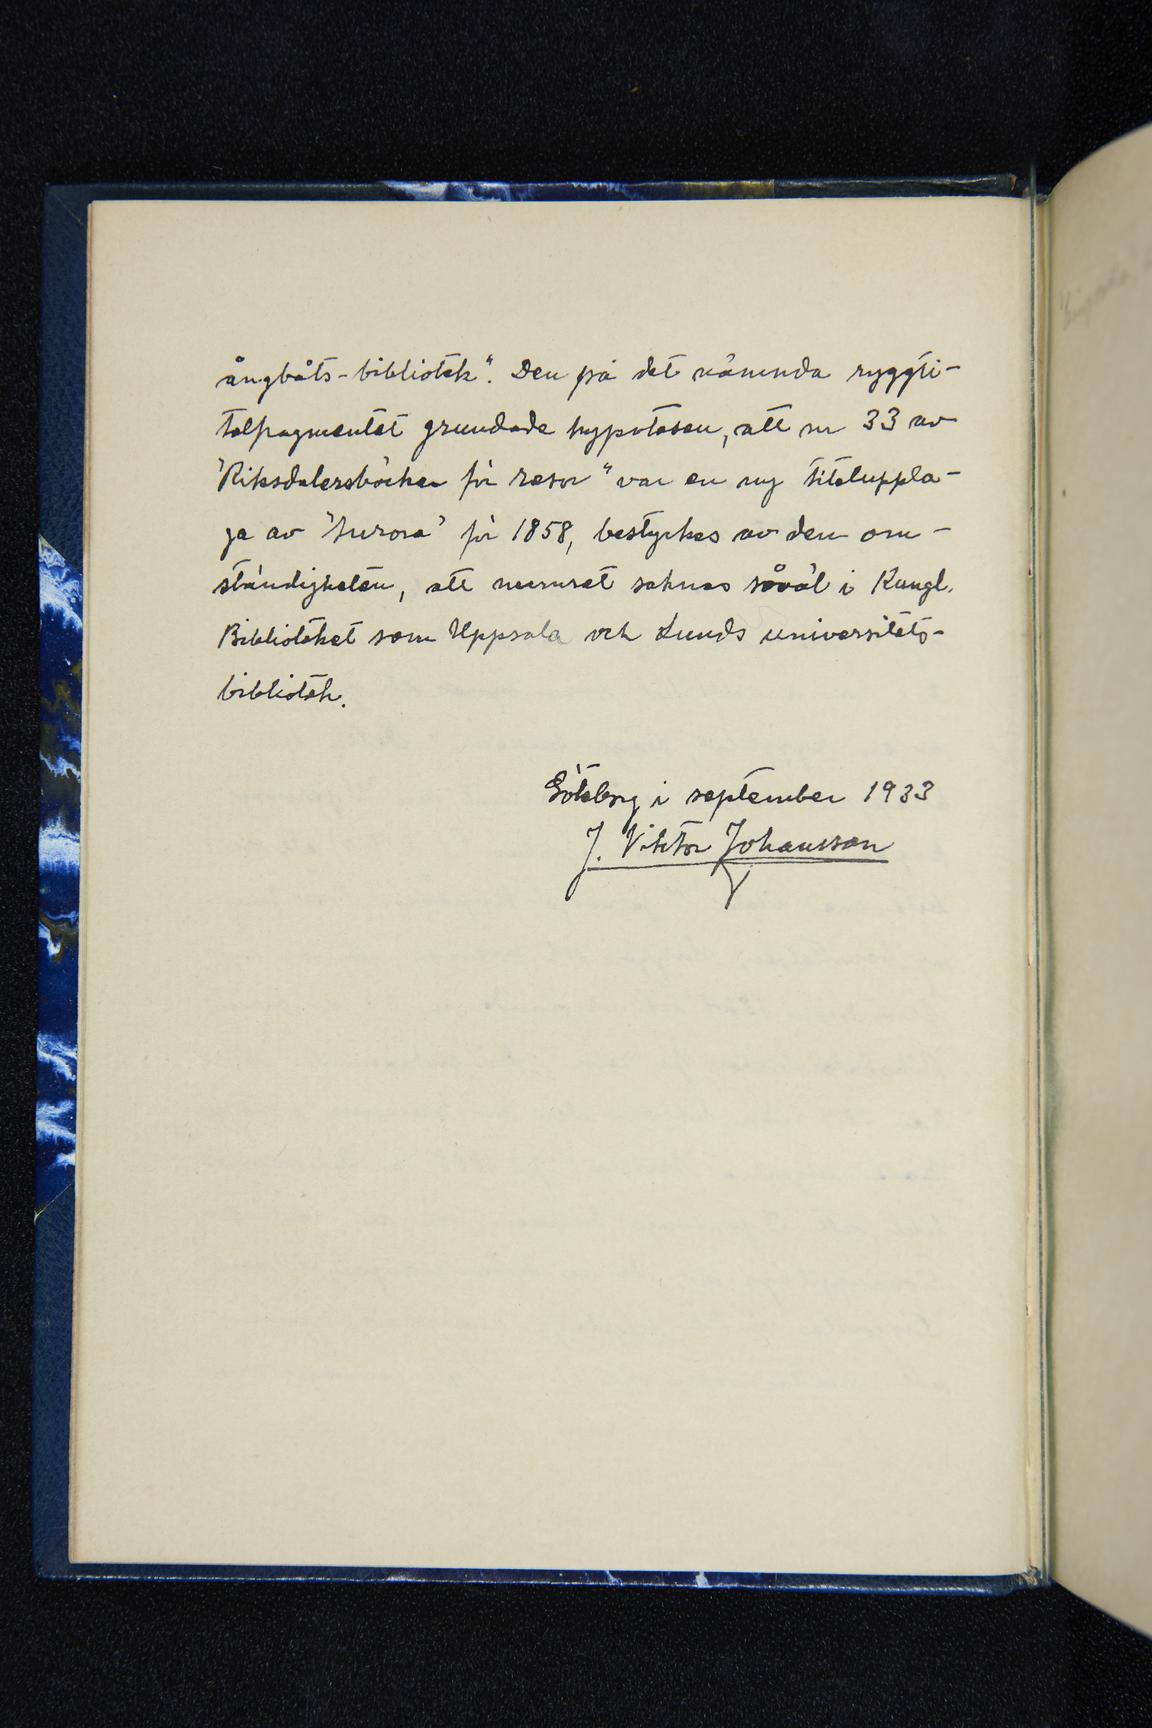 ångbåts-bibliotek". Den på det nämnda ryggti-
telfragmentet grundade hypotesen, att nr 33 av
"Riksdalersböcker för resor" var en ny titeluppla-
ga av "Aurora" för 1858, bestyrkes av den om-
ständigheten, att numret saknas såväl i Kungl.
Biblioteket som Uppsala och Lunds universitets-
bibliotek.
Göteborg i september 1933
J. Viktor Johansson